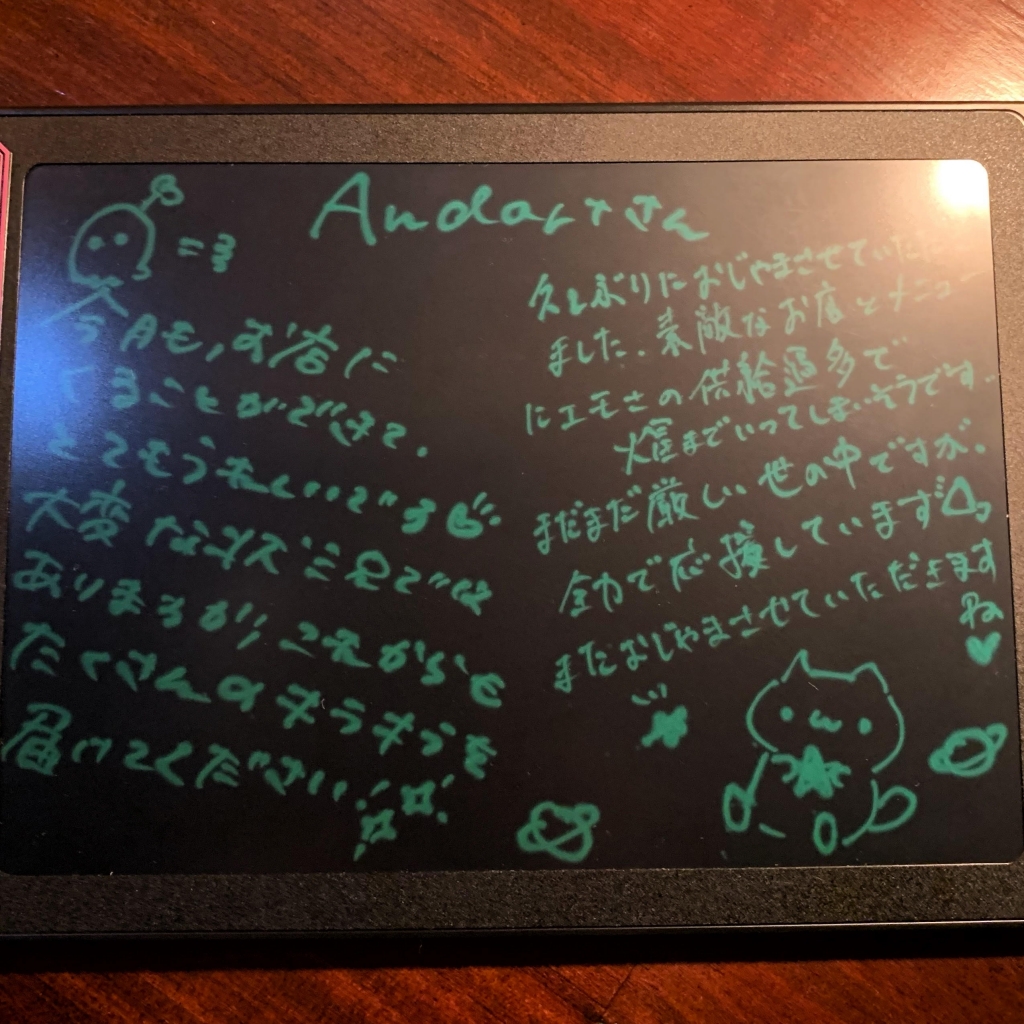 Andartさん
今月も,お店に
くることができて.
とてもうれしいです
大変な状況では
ありますが,これからも
たくさんのキラキラを
届けてください!
久しぶりにおじゃまさせていただ
ました.素敵なお店とメニュー
にエモさの供給過多で
火星までいってしまいそうです..
まだまだ厳しい世の中ですが.
全力で応援しています
またおじゃまさせていただきます
ね